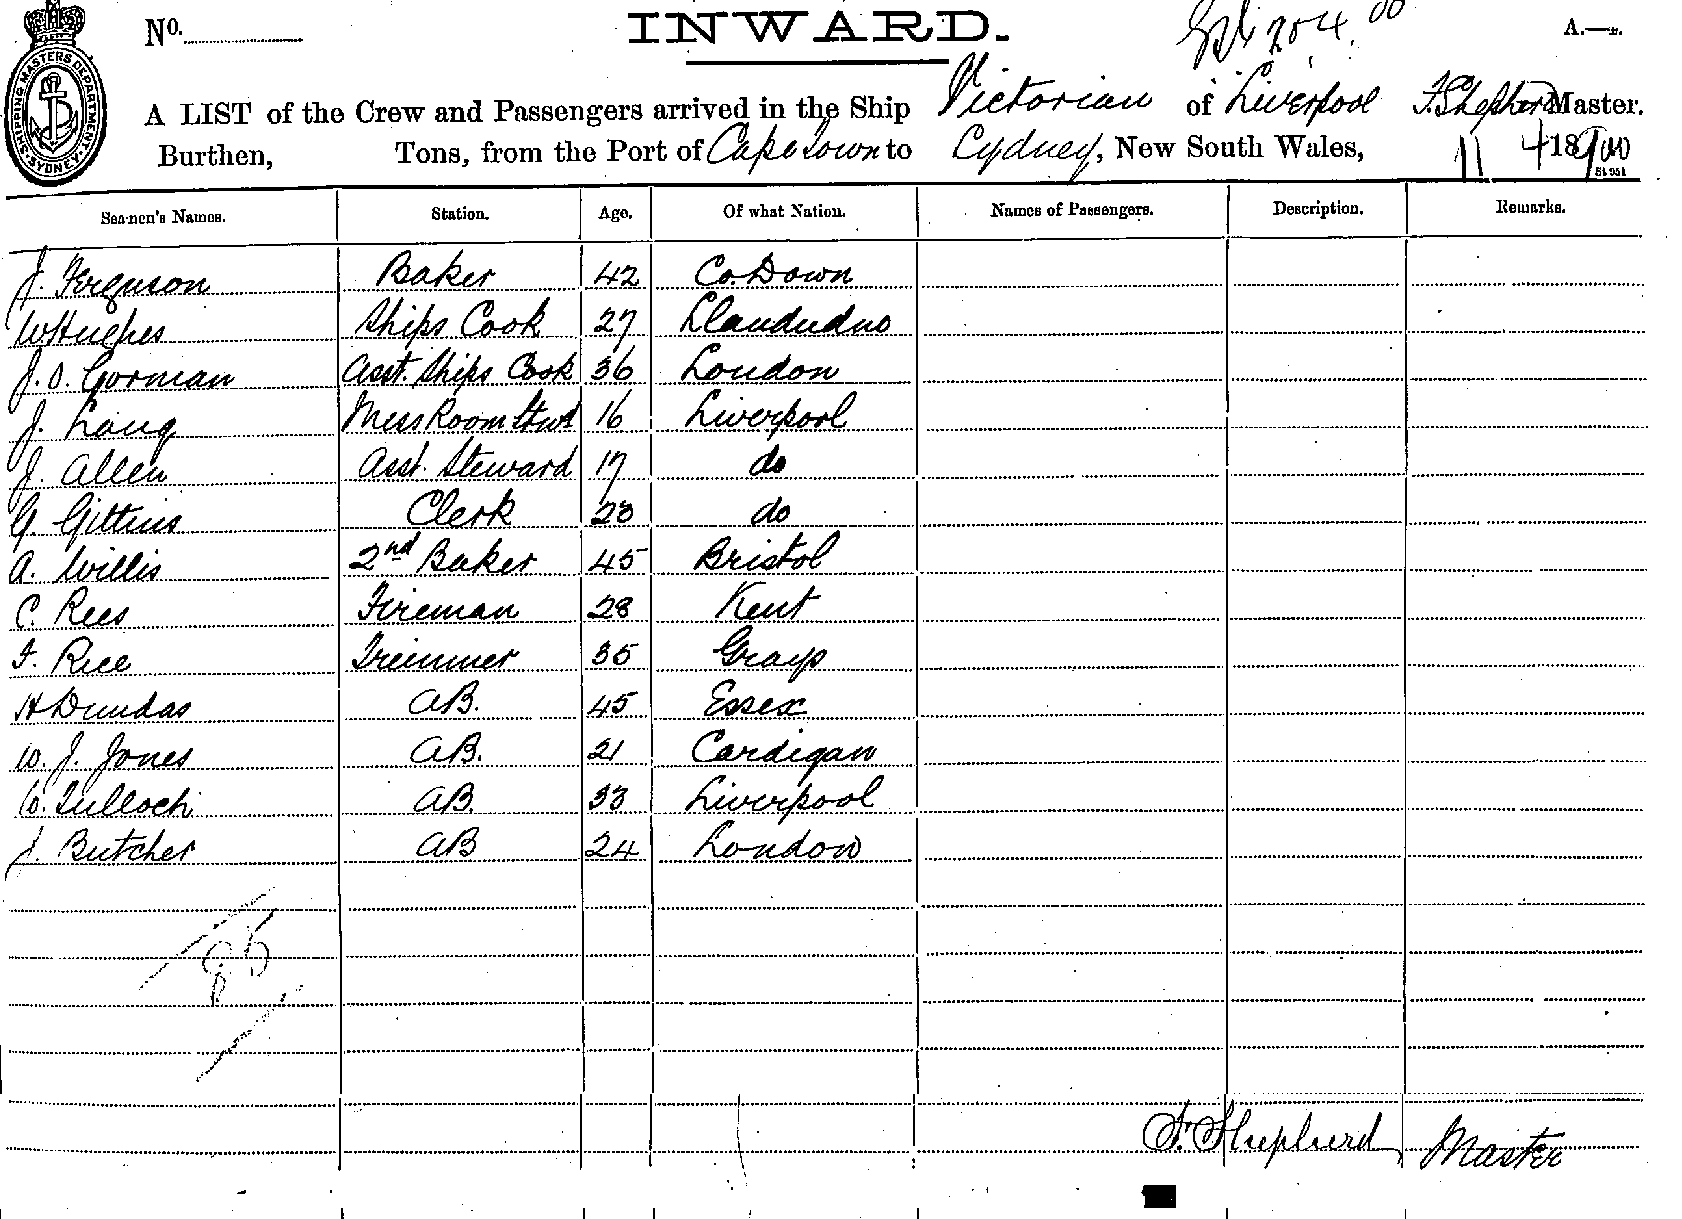 No.
INWARD.
A.—E.
SHIPPING MASTERS DEPARTMENT. SYDNEY.
A LIST of the Crew and Passengers arrived in the Ship Victorian of Liverpool F. Shepherd Master.
Burthen, Tons, from the Port of Cape Town to Cydney, New South Wales, 11 4 1900
Seamen's Names. Station. Age. Of what Nation. Names of Passengers. Description. Remarks.
J. Ferguson Baker 42 Co. Down
W Hughes Ships Cook 27 Llandudno
J. O. Gorman Asst. Ships Cook 36 London
J. Lang Mess Room Stwd 16 Liverpool
J. Allen Asst. Steward 17 do
G. Gittins Clerk 23 do
A. Willis 2nd Baker 45 Bristol
C. Rees Fireman 28 Kent
F. Rice Trimmer 35 Grays
H Dundas AB. 45 Essex
W. J. Jones AB. 21 Cardigan
W. Tulloch AB. 33 Liverpool
J. Butcher AB 24 London
85
F. Shepherd Master